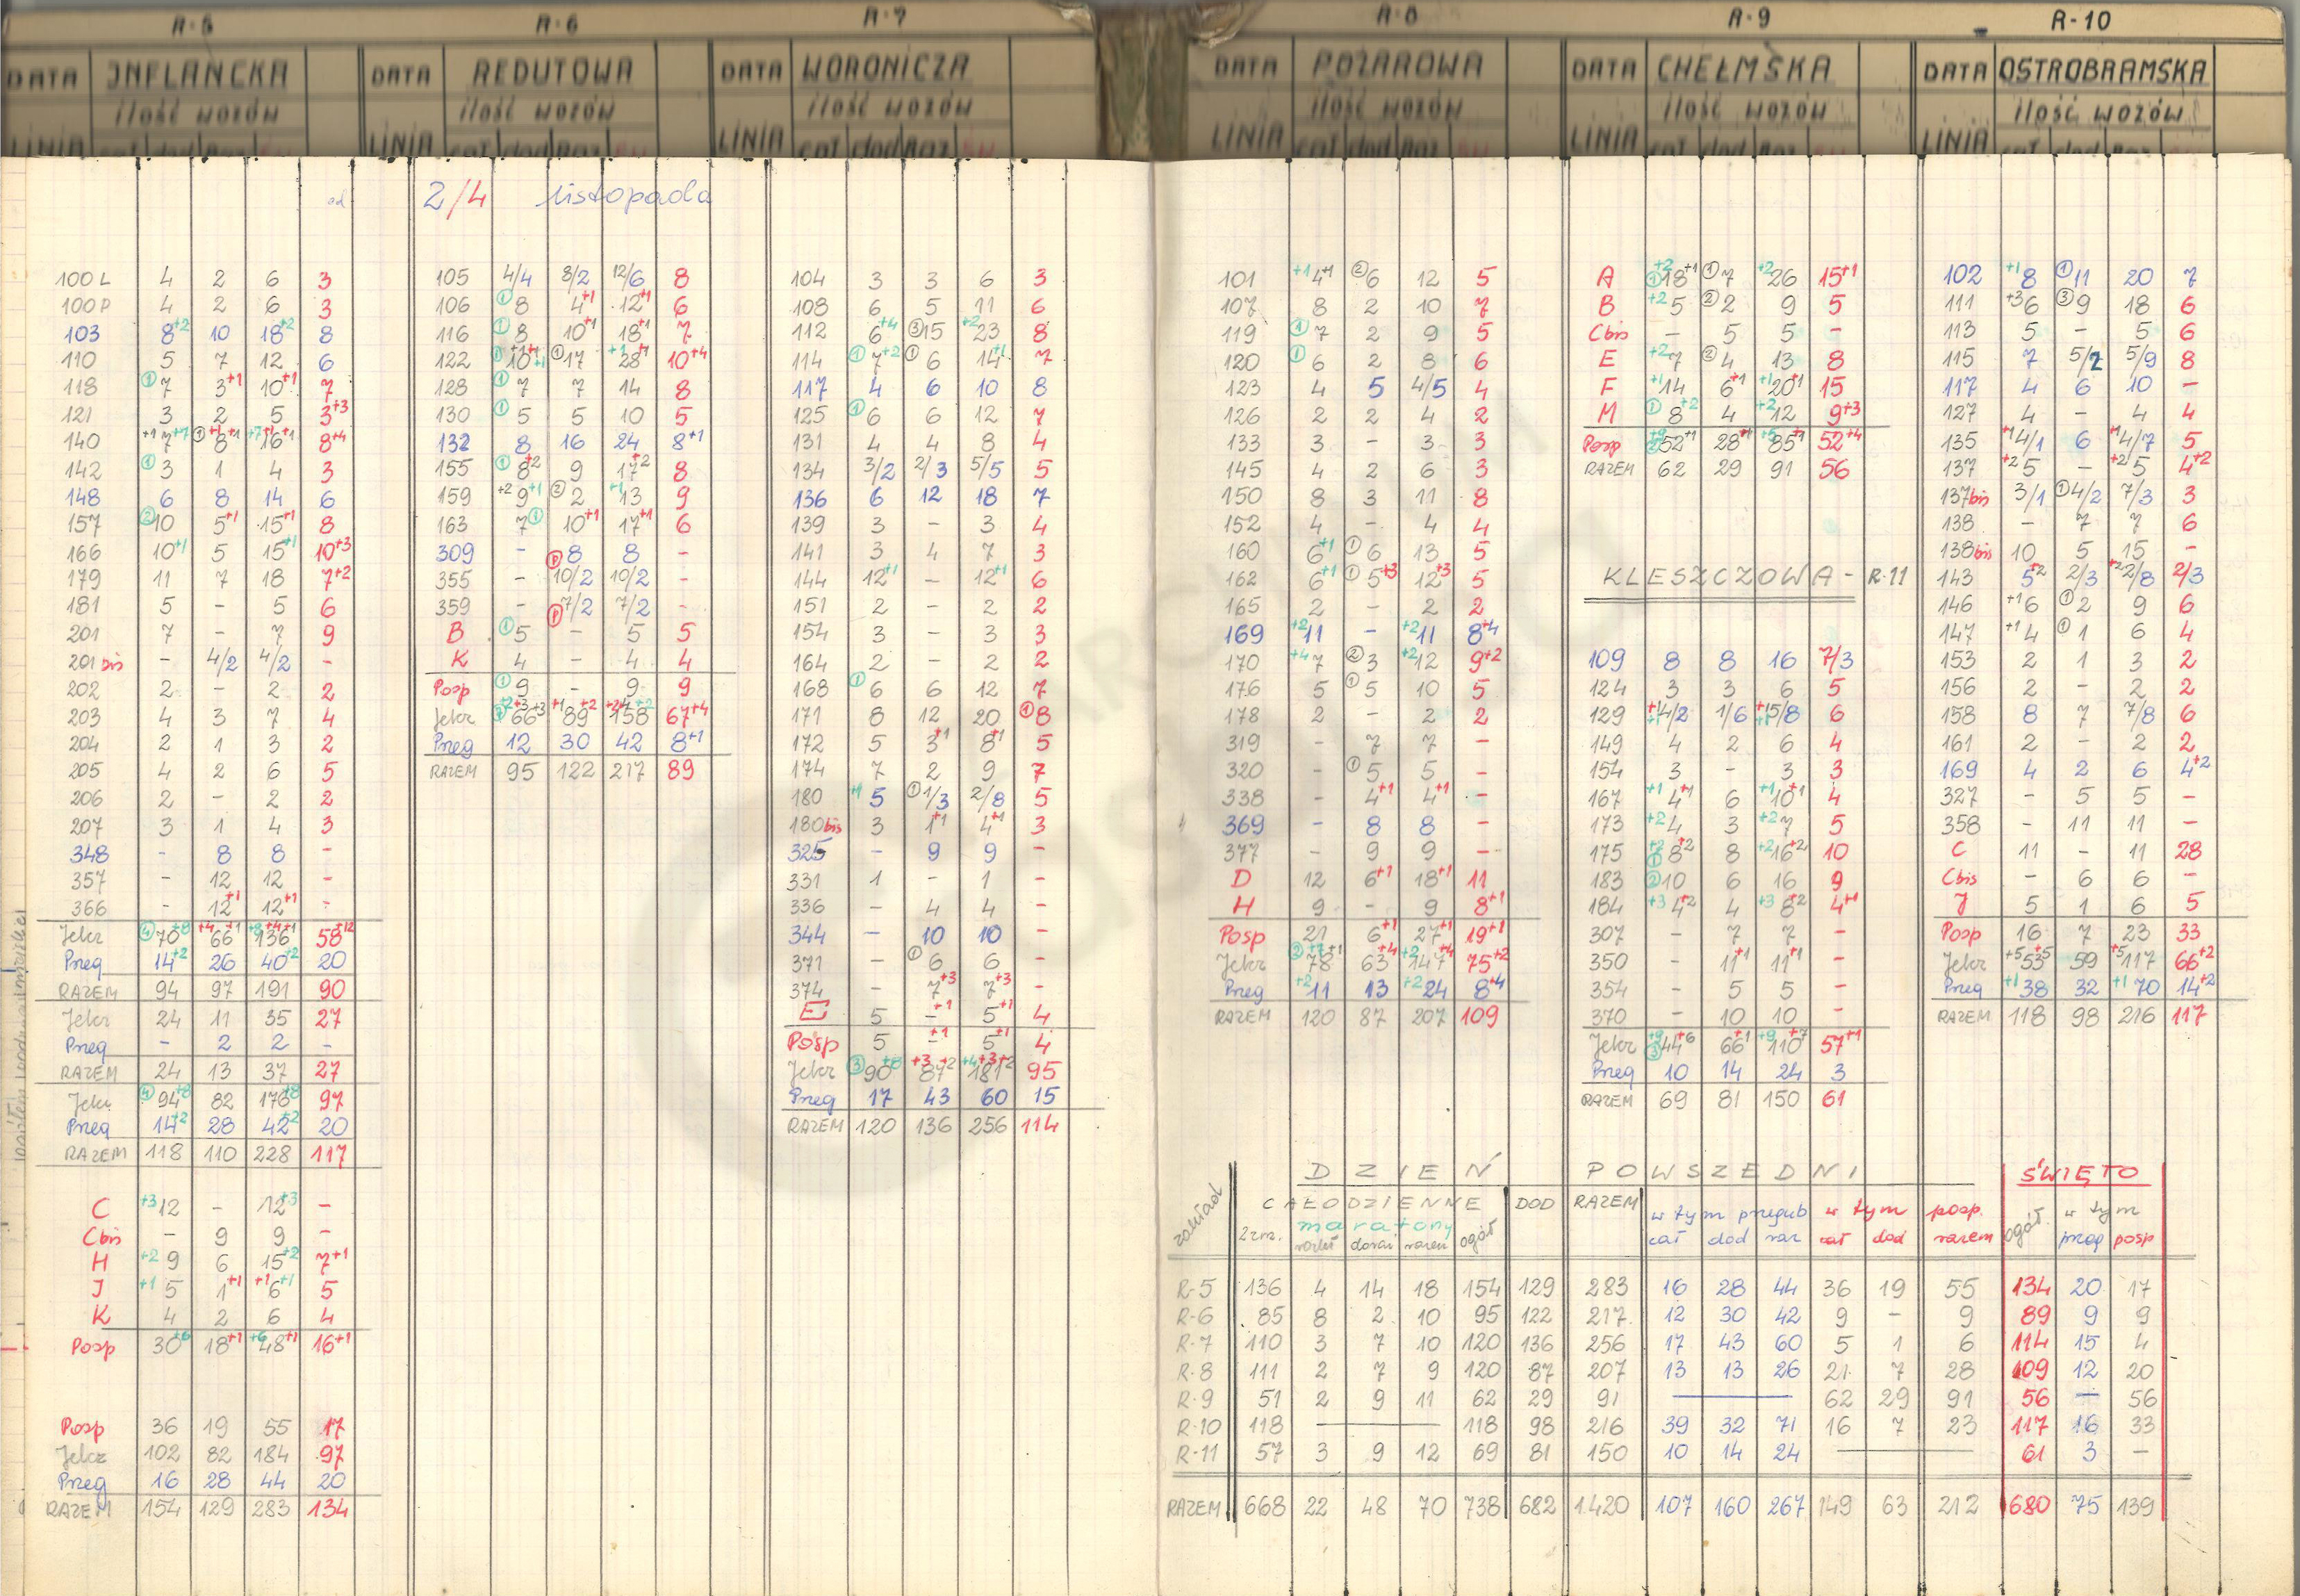 R-5
DATA INFLANCKA
ilość wozów
LINIA cał dod Raz Św
R-6
DATA REDUTOWA
ilość wozów
LINIA cał dod Raz Św
R-7
DATA WORONICZA
ilość wozów
LINIA cał dod Raz Św
R-8
DATA POŻAROWA
ilość wozów
LINIA cał dod Raz Św
R-9
DATA CHEŁMSKA
ilość wozów
LINIA cał dod Raz Św
R-10
DATA OSTROBRAMSKA
ilość wozów
LINIA cał dod Raz Św
od 2/4 listopada
100L 4 2 6 3
100P 4 2 6 3
103 8+2 10 18+2 8
110 5 7 12 6
118 (1)7 3+1 10+1 7
121 3 2 5 3+3
140 +1 7+7 (1)8+1 +7 16+1 8+4
142 (1)3 1 4 3
148 6 8 14 6
157 (2)10 5+1 15+1 8
166 10+1 5 15+1 10+3
179 11 7 18 7+2
181 5 - 5 6
201 7 - 7 9
201bis - 4/2 4/2 -
202 2 - 2 2
203 4 3 7 4
204 2 1 3 2
205 4 2 6 5
206 2 - 2 2
207 3 1 4 3
348 - 8 8 -
357 - 12 12 -
366 - 12+1 12+1 -
Jelcz (4)70+8 +4 66+1 +8 136+4+1 58+12
Preg 14+2 26 40+2 20
RAZEM 94 97 191 90
Jelcz 24 11 35 27
Preg - 2 2 -
RAZEM 24 13 37 27
Jelcz (4)94+8 82 176+8 97
Preg 14+2 28 42+2 20
RAZEM 118 110 228 117
C +3 12 - 12+3 -
Cbis - 9 9 -
H +2 9 6 15+2 7+1
J +1 5 1+1 +1 6+1 5
K 4 2 6 4
Posp 30+6 18+1 +6 48+1 16+1
Posp 36 19 55 17
Jelcz 102 82 184 97
Preg 16 28 44 20
RAZEM 154 129 283 134
105 4/4 8/2 12/6 8
106 (1)8 4+1 12+1 6
116 (1)8 10+1 18+1 7
122 (1)10+1+1 (1)17 +1 28+1 10+4
128 (1)7 7 14 8
130 (1)5 5 10 5
132 8 16 24 8+1
155 (1)8+2 9 17+2 8
159 +2 9+1 (2)2 +1 13 9
163 7(1) 10+1 17+1 6
309 - 8 8 -
355 - (1)10/2 10/2 -
359 - (1)7/2 7/2 -
B (1)5 - 5 5
K 4 - 4 4
Posp (1)9 - 9 9
Jelcz (7)66+2+3+3 +1 89+2 158+2 67+4
Preg 12 30 42 8+1
RAZEM 95 122 217 89
104 3 3 6 3
108 6 5 11 6
112 6+4 (3)15 +2 23 8
114 (1)7+2 (1)6 14+1 7
117 4 6 10 8
125 (1)6 6 12 7
131 4 4 8 4
134 3/2 2/3 5/5 5
136 6 12 18 7
139 3 - 3 4
141 3 4 7 3
144 12+1 - 12+1 6
151 2 - 2 2
154 3 - 3 3
164 2 - 2 2
168 (1)6 6 12 7
171 8 12 20 (1)8
172 5 3+1 8+1 5
174 7 2 9 7
180 +1 5 (1)1/3 2/8 5
180bis 3 1+1 4+1 3
325 - 9 9 -
331 1 - 1 -
336 - 4 4 -
344 - 10 10 -
371 - (1)6 6 -
374 - 7+3 7+3 -
E 5 -+1 5+1 4
Posp 5 -+1 5+1 4
Jelcz (3)90+8 +3 87+2 +4 181+3+2 95
Preg 17 43 60 15
RAZEM 120 136 256 114
101 +1 4+1 (2)6 12 5
107 8 2 10 7
119 (1)7 2 9 5
120 (1)6 2 8 6
123 4 5 4/5 4
126 2 2 4 2
133 3 - 3 3
145 4 2 6 3
150 8 3 11 8
152 4 - 4 4
160 6+1 (1)6 13 5
162 6+1 (1)5+3 12+3 5
165 2 - 2 2
169 +2 11 - +2 11 8+4
170 +4 7 (2)3 +2 12 9+2
176 5 (1)5 10 5
178 2 - 2 2
319 - 7 7 -
320 - (1)5 5 -
338 - 4+1 4+1 -
369 - 8 8 -
377 - 9 9 -
D 12 6+1 18+1 11
H 9 - 9 8+1
Posp 21 6+1 27+1 19+1
Jelcz (2)78+7+1 63+4 +2 147+4 75+2
Preg +2 11 13 +2 24 8+4
RAZEM 120 87 207 109
A +2 (1)18+1 (1)7 +2 26 15+1
B +2 5 (2)2 9 5
Cbis - 5 5 -
E +2 7 (2)4 13 8
F +1 14 6+1 +1 20+1 15
M (1)8+2 4 +2 12 9+3
Posp +9 (2)52+1 28+1 +5 85+1 52+4
RAZEM 62 29 91 56
KLESZCZOWA - R-11
109 8 8 16 7/3
124 3 3 6 5
129 +1 4/2 1/6 +1 5/8 6
149 4 2 6 4
154 3 - 3 3
167 +1 4+1 6 +1 10+1 4
173 +2 4 3 +2 7 5
175 +2 (1)8+2 8 +2 16+2 10
183 (2)10 6 16 9
184 +3 4+2 4 +3 8+2 4+1
307 - 7 7 -
350 - 11+1 11+1 -
354 - 5 5 -
370 - 10 10 -
Jelcz +9 (3)44+6 66+1 +9 110+7 57+1
Preg 10 14 24 3
RAZEM 69 81 150 61
102 +1 8 (1)11 20 7
111 +3 6 (3)9 18 6
113 5 - 5 6
115 7 5/2 5/9 8
117 4 6 10 -
127 4 - 4 4
135 +1 4/1 6 +1 4/7 5
137 +2 5 - +2 5 4+2
137bis 3/1 (1)4/2 7/3 3
138 - 7 7 6
138bis 10 5 15 -
143 5+2 2/3 +2 2/8 2/3
146 +1 6 (1)2 9 6
147 +1 4 (1)1 6 4
153 2 1 3 2
156 2 - 2 2
158 8 7 7/8 6
161 2 - 2 2
169 4 2 6 4+2
327 - 5 5 -
358 - 11 11 -
C 11 - 11 28
Cbis - 6 6 -
J 5 1 6 5
Posp 16 7 23 33
Jelcz +5 53+5 59 +5 117 66+2
Preg +1 38 32 +1 70 14+2
RAZEM 118 98 216 117
DZIEŃ POWSZEDNI ŚWIĘTO
zakład CAŁODZIENNE DOD RAZEM w tym przegub w tym posp. ogół. w tym
maratony
2zm. razem ogół cał dod raz cał dod razem preg posp
R-5 136 4 14 18 154 129 283 16 28 44 36 19 55 134 20 17
R-6 85 8 2 10 95 122 217 12 30 42 9 - 9 89 9 9
R-7 110 3 7 10 120 136 256 17 43 60 5 1 6 114 15 4
R-8 111 2 7 9 120 87 207 13 13 26 21 7 28 109 12 20
R-9 51 2 9 11 62 29 91 — 62 29 91 56 — 56
R-10 118 — 118 98 216 39 32 71 16 7 23 117 16 33
R-11 57 3 9 12 69 81 150 10 14 24 — 61 3 —
RAZEM 668 22 48 70 738 682 1420 107 160 267 149 63 212 680 75 139